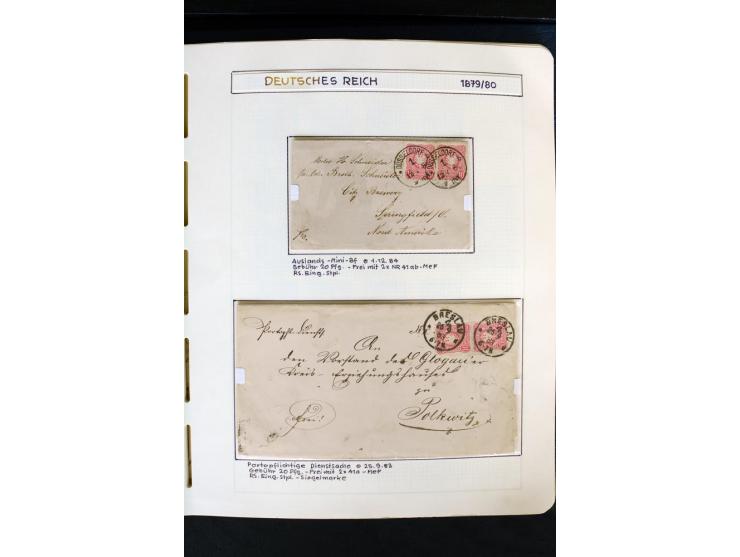 DEUTSCHES REICH 1879/80
DÜSSELDORF
DÜSSELDORF
City Brewery
Springfield/O.
Nord Amerika
Auslands-Mini-Bf 1.12.84
Gebühr 20 Pfg. - Frei mit 2x NR 41ab-MeF
RS. Eing. Stpl.
BRESLAU
BRESLAU
Portopfl. Dienfts.
An
den Vorstand des Glogauer
Kreis-Erziehungshauses
zu
Polkwitz
frei!
Portopflichtige Dienstsache 25.9.83
Gebühr 20 Pfg. - Frei mit 2x41a - MeF
RS. Eing. Stpl. - Siegelmarke